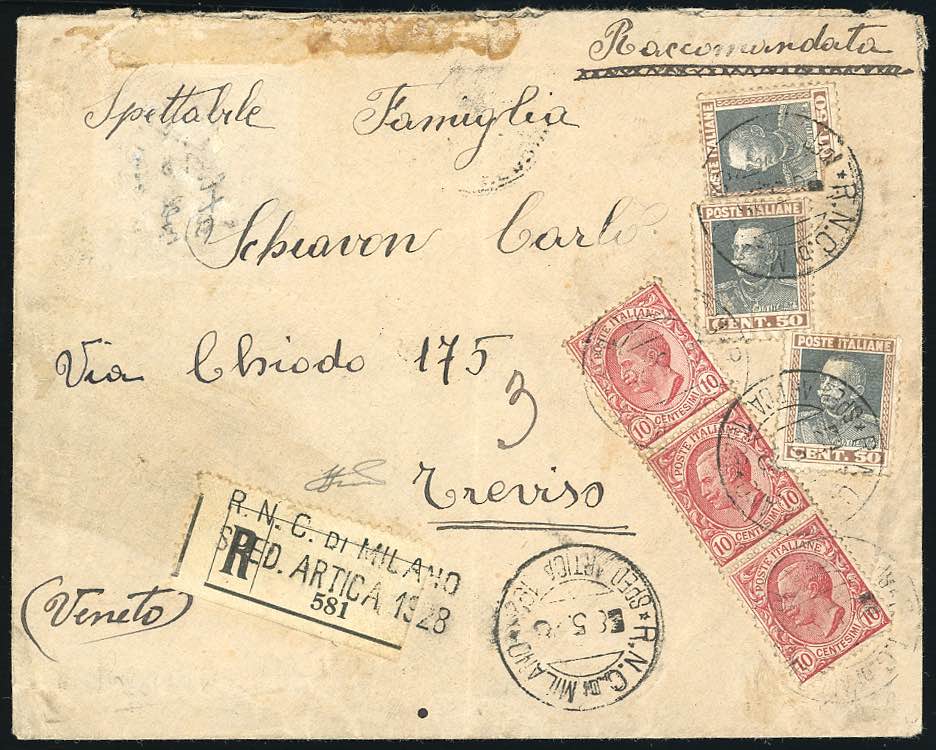 Raccomandata
Spettabile Famiglia
Schiavon Carlo
Via Chiodo 175
3
Treviso
(Veneto)
R. N. C. di MILANO
SPED. ARTICA 1928
R
581
POSTE ITALIANE
CENT. 50
POSTE ITALIANE
CENT. 50
POSTE ITALIANE
10 CENTESIMI 10
POSTE ITALIANE
10 CENTESIMI 10
POSTE ITALIANE
10 CENTESIMI 10
* R.N.C. di MILANO * SPED ARTICA
* R.N.C.